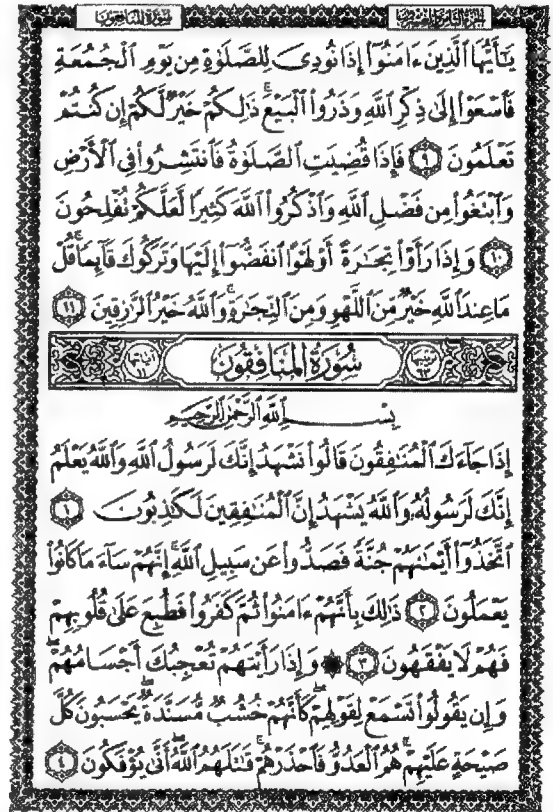 سُورَةُ المُنَافِقُونَ
الجُزْءُ الثَّامِنُ وَالعِشْرُونَ
يَٰٓأَيُّهَا ٱلَّذِينَ ءَامَنُوٓا۟ إِذَا نُودِىَ لِلصَّلَوٰةِ مِن يَوْمِ ٱلْجُمُعَةِ
فَٱسْعَوْا۟ إِلَىٰ ذِكْرِ ٱللَّهِ وَذَرُوا۟ ٱلْبَيْعَ ۚ ذَٰلِكُمْ خَيْرٌ لَّكُمْ إِن كُنتُمْ
تَعْلَمُونَ ٩ فَإِذَا قُضِيَتِ ٱلصَّلَوٰةُ فَٱنتَشِرُوا۟ فِى ٱلْأَرْضِ
وَٱبْتَغُوا۟ مِن فَضْلِ ٱللَّهِ وَٱذْكُرُوا۟ ٱللَّهَ كَثِيرًا لَّعَلَّكُمْ تُفْلِحُونَ
١٠ وَإِذَا رَأَوْا۟ تِجَٰرَةً أَوْ لَهْوًا ٱنفَضُّوٓا۟ إِلَيْهَا وَتَرَكُوكَ قَآئِمًا ۚ قُلْ
مَا عِندَ ٱللَّهِ خَيْرٌ مِّنَ ٱللَّهْوِ وَمِنَ ٱلتِّجَٰرَةِ ۚ وَٱللَّهُ خَيْرُ ٱلرَّٰزِقِينَ ١١
سُورَةُ المُنَافِقُونَ
بِسْمِ ٱللَّهِ ٱلرَّحْمَٰنِ ٱلرَّحِيمِ
إِذَا جَآءَكَ ٱلْمُنَٰفِقُونَ قَالُوا۟ نَشْهَدُ إِنَّكَ لَرَسُولُ ٱللَّهِ ۗ وَٱللَّهُ يَعْلَمُ
إِنَّكَ لَرَسُولُهُۥ وَٱللَّهُ يَشْهَدُ إِنَّ ٱلْمُنَٰفِقِينَ لَكَٰذِبُونَ ١
ٱتَّخَذُوٓا۟ أَيْمَٰنَهُمْ جُنَّةً فَصَدُّوا۟ عَن سَبِيلِ ٱللَّهِ ۚ إِنَّهُمْ سَآءَ مَا كَانُوا۟
يَعْمَلُونَ ٢ ذَٰلِكَ بِأَنَّهُمْ ءَامَنُوا۟ ثُمَّ كَفَرُوا۟ فَطُبِعَ عَلَىٰ قُلُوبِهِمْ
فَهُمْ لَا يَفْقَهُونَ ٣ ۞ وَإِذَا رَأَيْتَهُمْ تُعْجِبُكَ أَجْسَامُهُمْ ۖ
وَإِن يَقُولُوا۟ تَسْمَعْ لِقَوْلِهِمْ ۖ كَأَنَّهُمْ خُشُبٌ مُّسَنَّدَةٌ ۖ يَحْسَبُونَ كُلَّ
صَيْحَةٍ عَلَيْهِمْ ۚ هُمُ ٱلْعَدُوُّ فَٱحْذَرْهُمْ ۚ قَٰتَلَهُمُ ٱللَّهُ ۖ أَنَّىٰ يُؤْفَكُونَ ٤